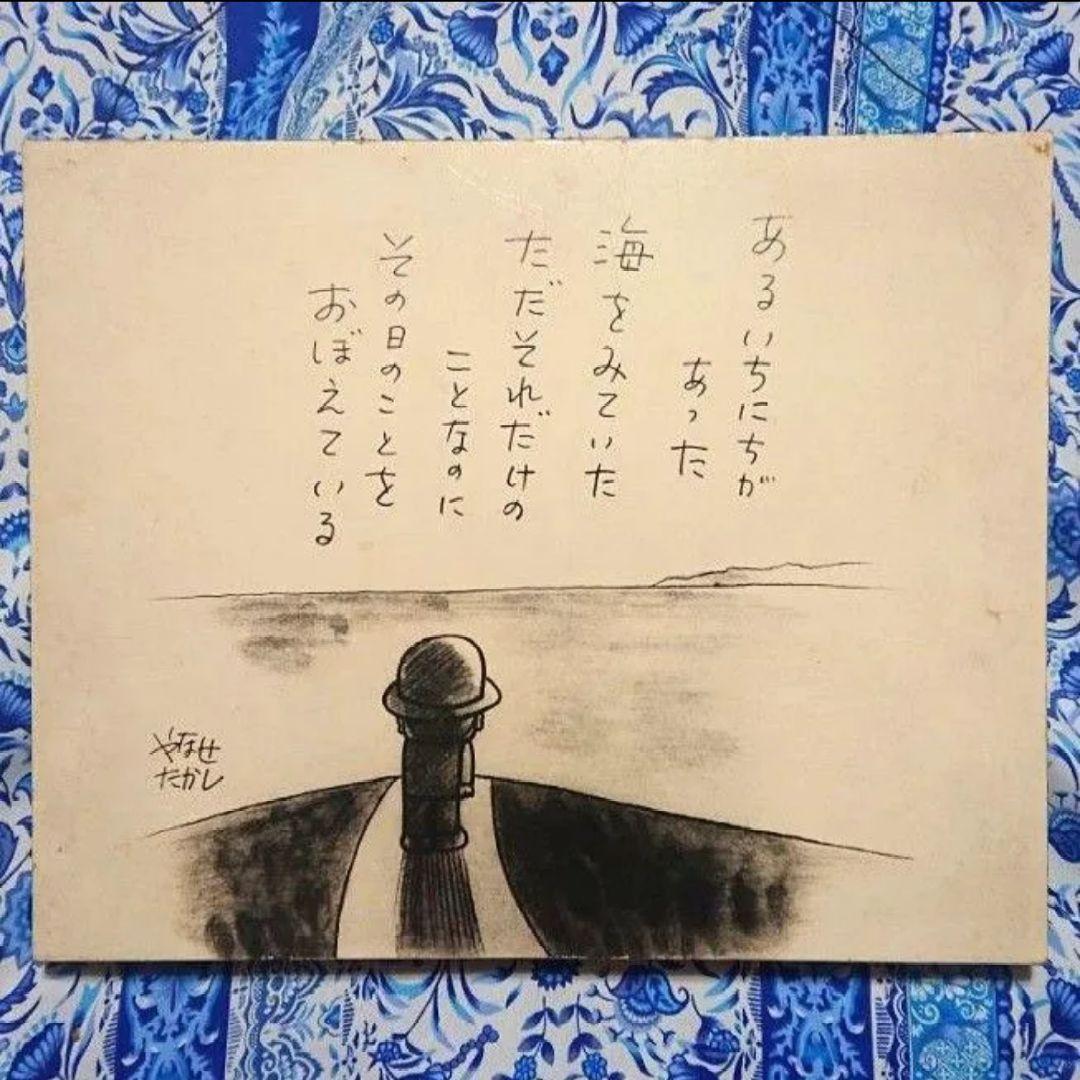 あるいちにちが
あった
海をみていた
ただそれだけの
ことなのに
その日のことを
おぼえている
やなせ
たかし